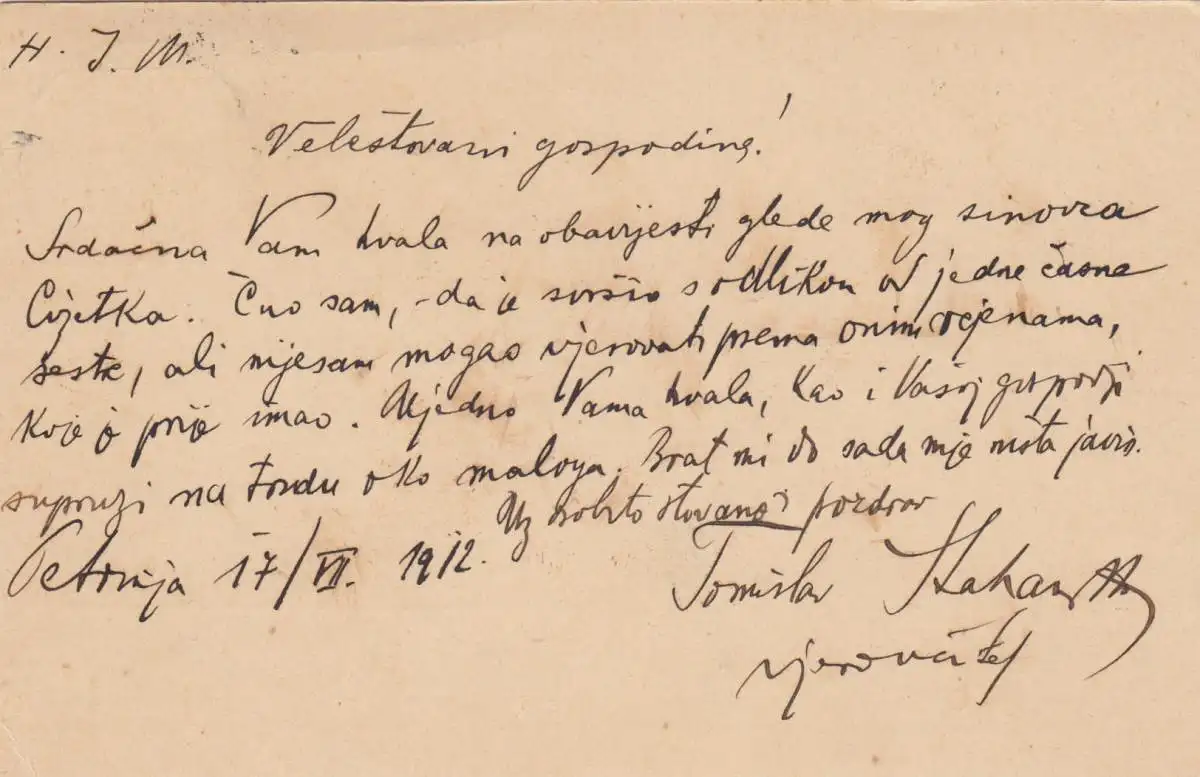 H. J. M.
Veleštovani gospodine!
Srdačna Vam hvala na obavijesti glede mog sinovca
Cvjetka. Čuo sam, - da je svršio s odlikom od jedne časne
sestre, ali nijesam mogao vjerovati prema onim ocjenama,
koje je prije imao. Ujedno Vama hvala, kao i Vašoj gospodji
supruzi na trudu oko maloga. Brat mi do sada nije ništa javio.
Uz pozdrav
Petrinja 17/VII. 1912.
Tomislav
vjeroučitelj